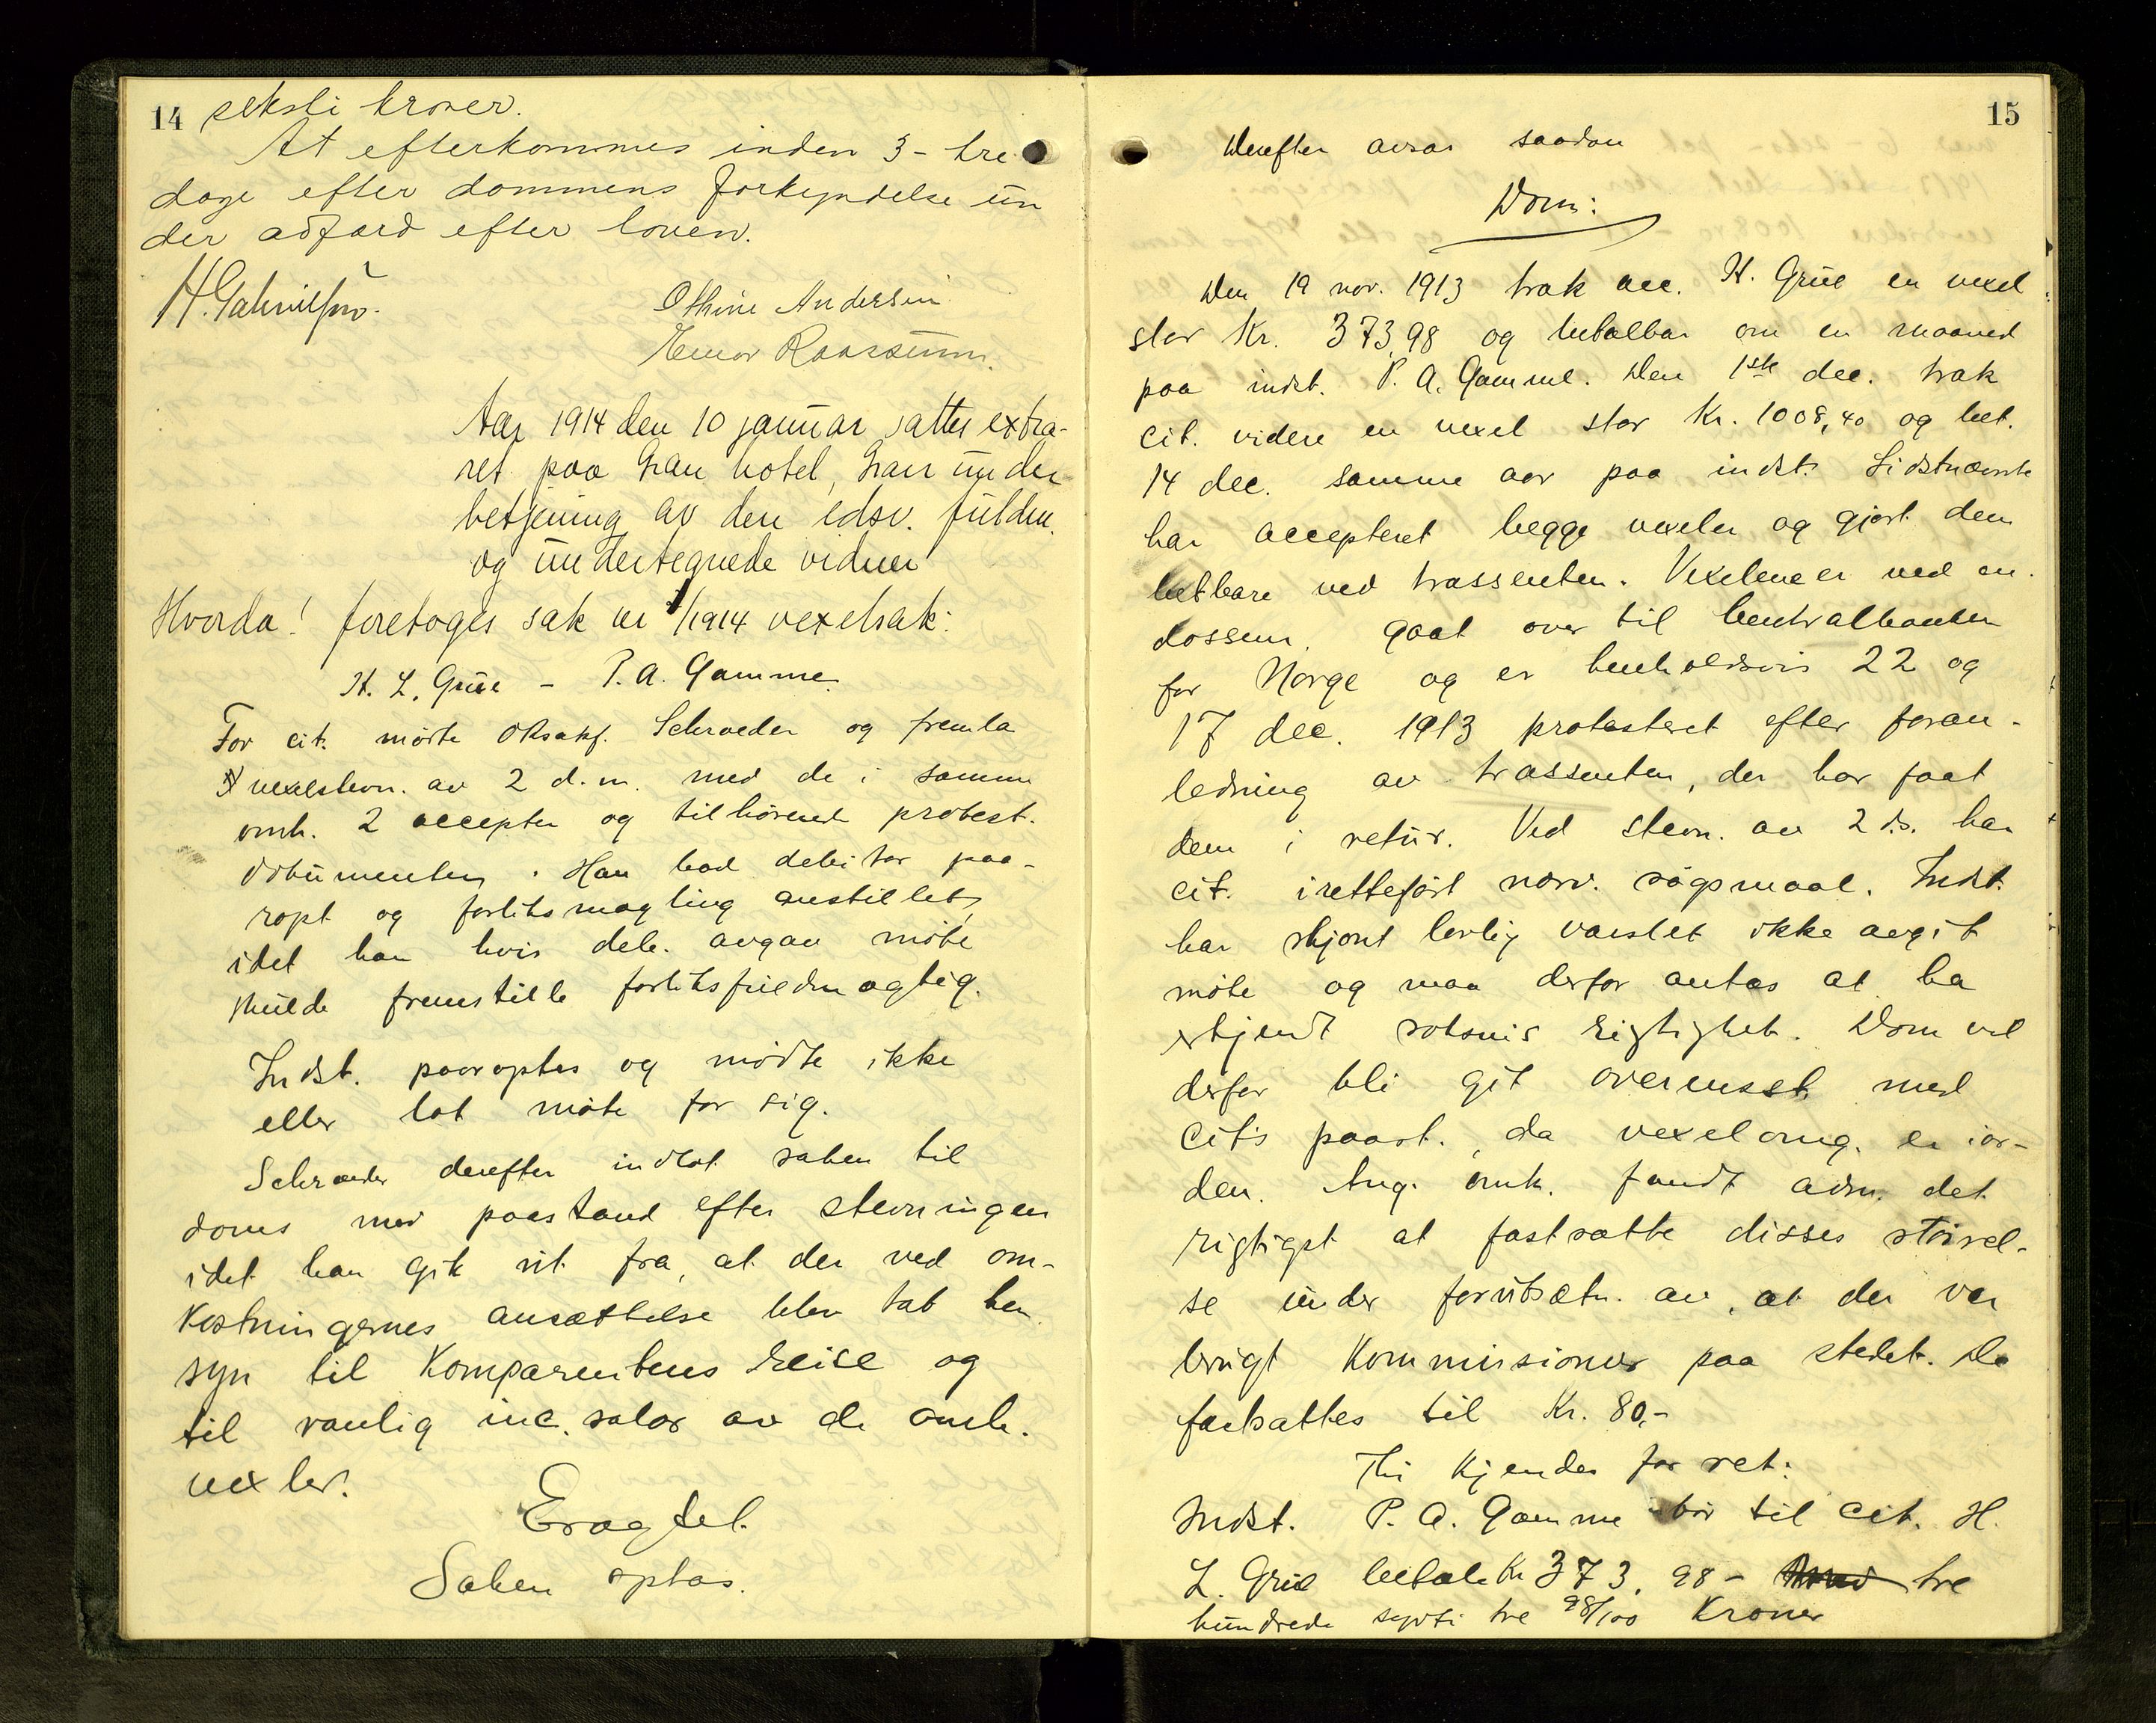 14 seksti kroner.
At efterkommes inden 3 - tre
dage efter dommens forkyndelse un
der adfærd efter loven.
Othine Andersen
Aar 1914 den 10 januar sattes extra-
ret paa Gran hotel, Gran under
betjening av den edsv. fuldm.
og undertegnede vidner
Hvorda! foretoges sak nr 1/1914 vexelsak:
H. L. Grue - P. A. Gamme
For cit. møtte oksakf. Schroeder og fremla
vexelstevn. av 2 d.m. med de i samme
omh. 2 accepter og tilhørende protest.
dokumenter. Han bad debitor paa-
ropt og forliksmægling anstillet,
idet han hvis deb. avgav møte
skulde fremstille forliksfuldmægtig.
Indst. paaroptes og mødte ikke
eller lot møte for sig.
Schroeder derefter indlot saken til
doms med paastand efter stevningen
idet han gik ut fra, at der ved om-
kostningernes ansættelse blev tat hen
syn til Komparentens reise og
til vanlig inc. salær av de omh.
vexler.
Eragtet
Saken optas.
15
Derefter avsas saadan
Dom:
Den 19 nov. 1913 trak H. Grue en vexel
stor Kr. 373,98 og betalbar om en maaned
paa indst. P. A. Gamme. Den 1ste dec. trak
cit. videre en vexel stor Kr. 1008,40 og bet.
14 dec. samme aar paa indst. Sidstnævnte
har accepteret begge vexler og gjort dem
betbare ved trassenten. Vexlene er ved en-
dossem. gaat over til Centralbanken
for Norge og er henholdsvis 22 og
17 dec. 1913 protesteret efter foran-
ledning av trassenten, der har faat
dem i retur. Ved stevn. av 2 ds. har
cit. iretteført nærv. søgsmaal. Indst.
har skjønt lovlig varslet ikke avgit
møte og maa derfor antas at ha
erkjendt søksmaalets rigtighet. Dom vil
derfor bli git overensst. med
Cit's paast., da vexelomg. er i or-
den. Ang. omk. fandt adm. det
rigtigst at fastsætte disses størrel-
se under forutsætn. av, at der var
brugt Kommissionær paa stedet. De
fastsættes til Kr. 80,-
Thi kjendes for ret:
Indst. P. A. Gamme bør til Cit. H.
L. Grue betale Kr 373,98 - tre
hundrede sytti tre 98/100 Kroner